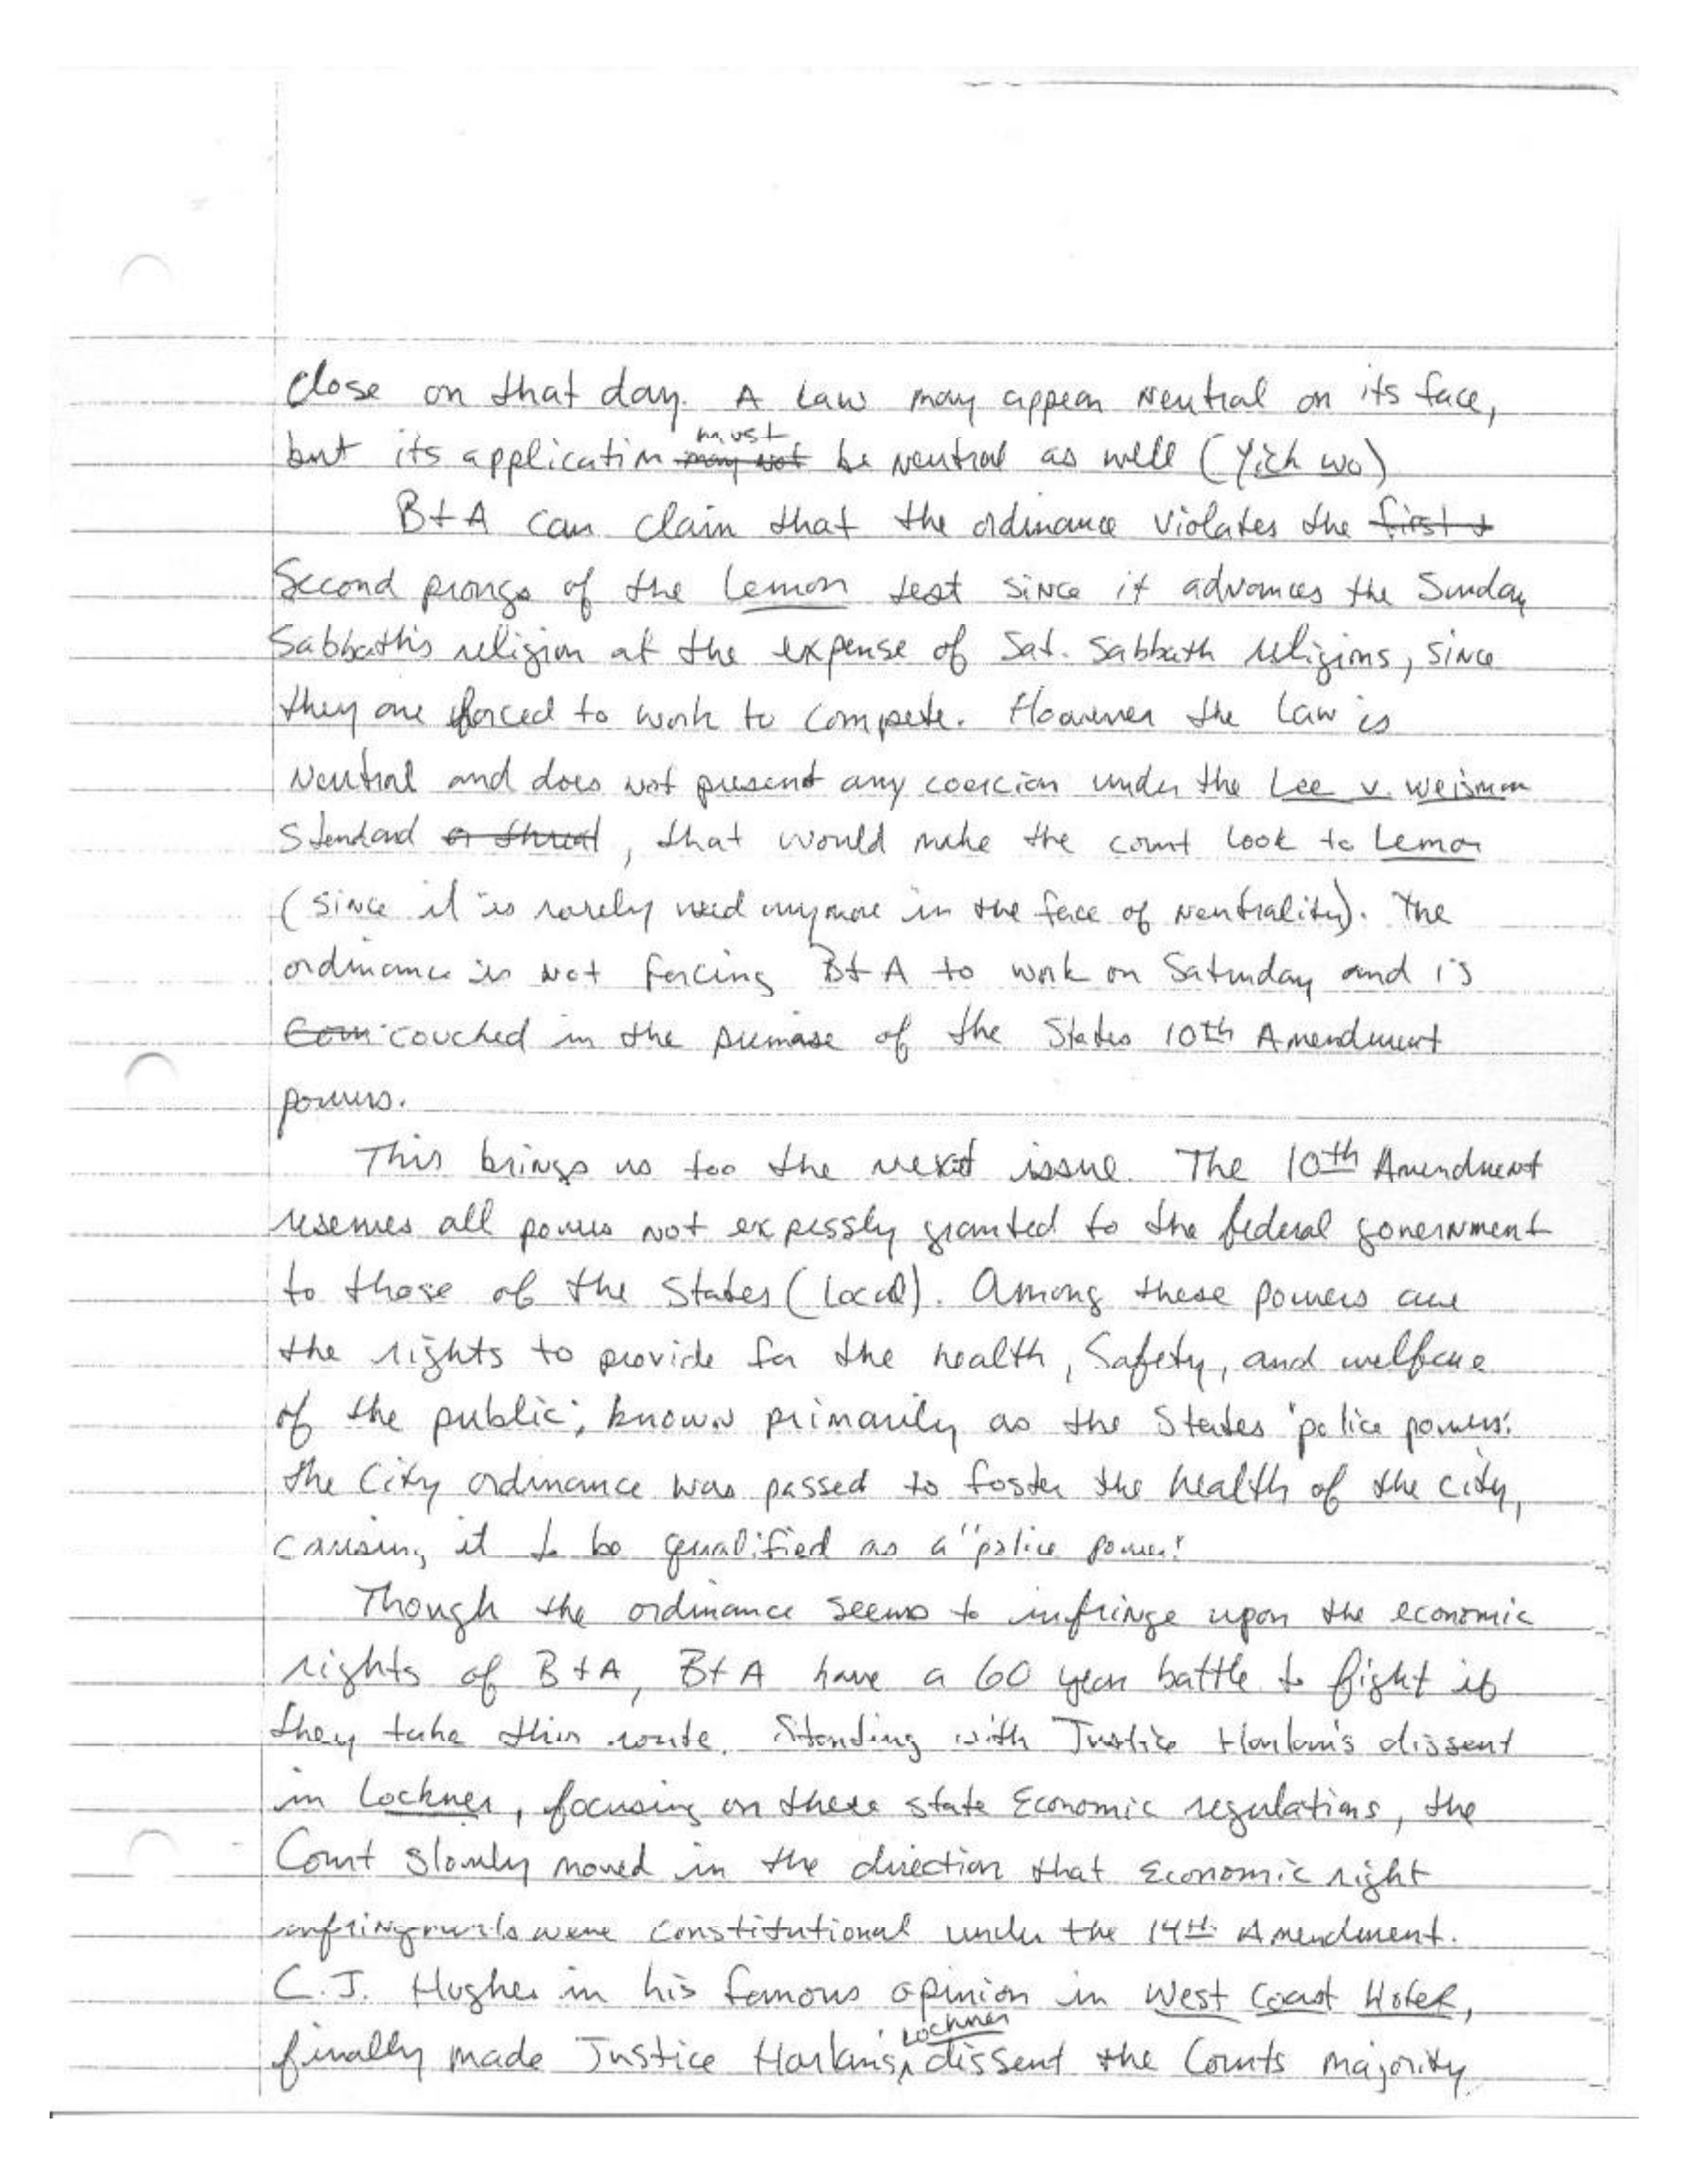 Close on that day. A Law may appear Neutral on its face,
but its application may not must be neutral as well (Yick Wo)
B+A can claim that the ordinance violates the first +
Second prongs of the Lemon test since it advances the Sunday
Sabbath's religion at the expense of Sat. Sabbath religions, since
they are forced to work to compete. However the Law is
Neutral and does not present any coercion under the Lee v. Weisman
Standard or threat, that would make the court look to Lemon
(since it is rarely used anymore in the face of neutrality). The
ordinance is not forcing B+A to work on Saturday and is
Com couched in the premise of the States 10th Amendment
powers.
This brings us too the next issue. The 10th Amendment
reserves all powers not expressly granted to the federal government
to those of the States (local). Among these powers are
the rights to provide for the health, Safety, and welfare
of the public; known primarily as the States 'police powers.'
The City ordinance was passed to foster the health of the city,
causing it to be qualified as a "police power."
Though the ordinance seems to infringe upon the economic
rights of B+A, B+A have a 60 year battle to fight if
they take this route. Standing with Justice Harlan's dissent
in Lockner, focusing on these state Economic regulations, the
Court slowly moved in the direction that Economic right
infringements were constitutional under the 14th Amendment.
C.J. Hughes in his famous opinion in West Coast Hotel,
finally made Justice Harlans' Lochner dissent the Courts majority